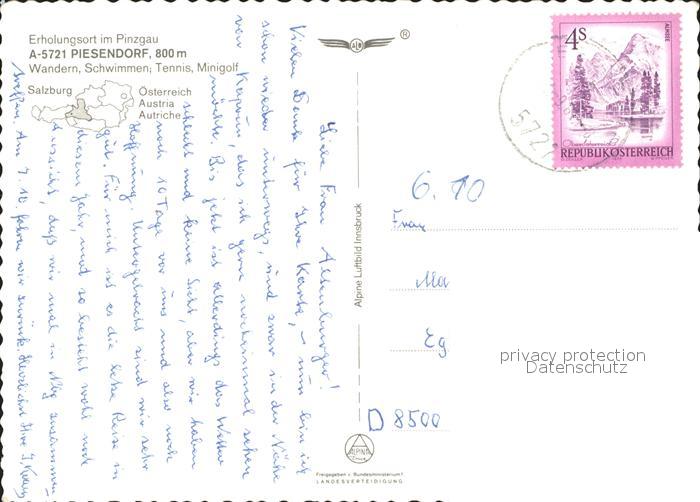 Erholungsort im Pinzgau
A-5721 PIESENDORF, 800 m
Wandern, Schwimmen, Tennis, Minigolf
Salzburg
Österreich
Austria
Autriche
Liebe Frau Altenburger!
Vielen Dank für Ihre Karte, – nun bin ich
schon wieder unterwegs, und zwar in der Nähe
von Kaprun, das ich gern nocheinmal sehen
wollte. Bis jetzt ist allerdings das Wetter
schlecht und keine Sicht, aber wir haben
noch 10 Tage vor uns und also noch
Hoffnung. Untergebracht sind wir sehr
gut. Für mich ist es die letzte Reise in
diesem Jahr, und so besteht wohl noch
Aussicht, daß wir mal in Nbg zusammen-
treffen. Am 7.10. fahren wir zurück. Herzlichst Ihre
Alpine Luftbild Innsbruck
ALPINE
Freigegeben v. Bundesministerium f.
LANDESVERTEIDIGUNG
®
4S
ALMSEE
Oberösterreich
REPUBLIK ÖSTERREICH
5721
6. 10
Frau
Ma
Eg
D 8500
privacy protection
Datenschutz